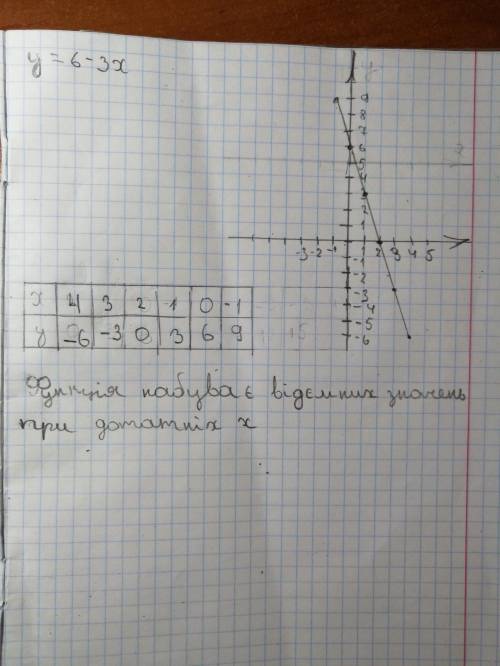 y = 6 - 3x
y
9
8
7
6
5
4
3
2
1
-3 -2 -1 1 2 3 4 5
-1
-2
-3
-4
-5
-6
x 4 3 2 1 0 -1
y -6 -3 0 3 6 9
Функція набуває відємних значень
при дотатніх x